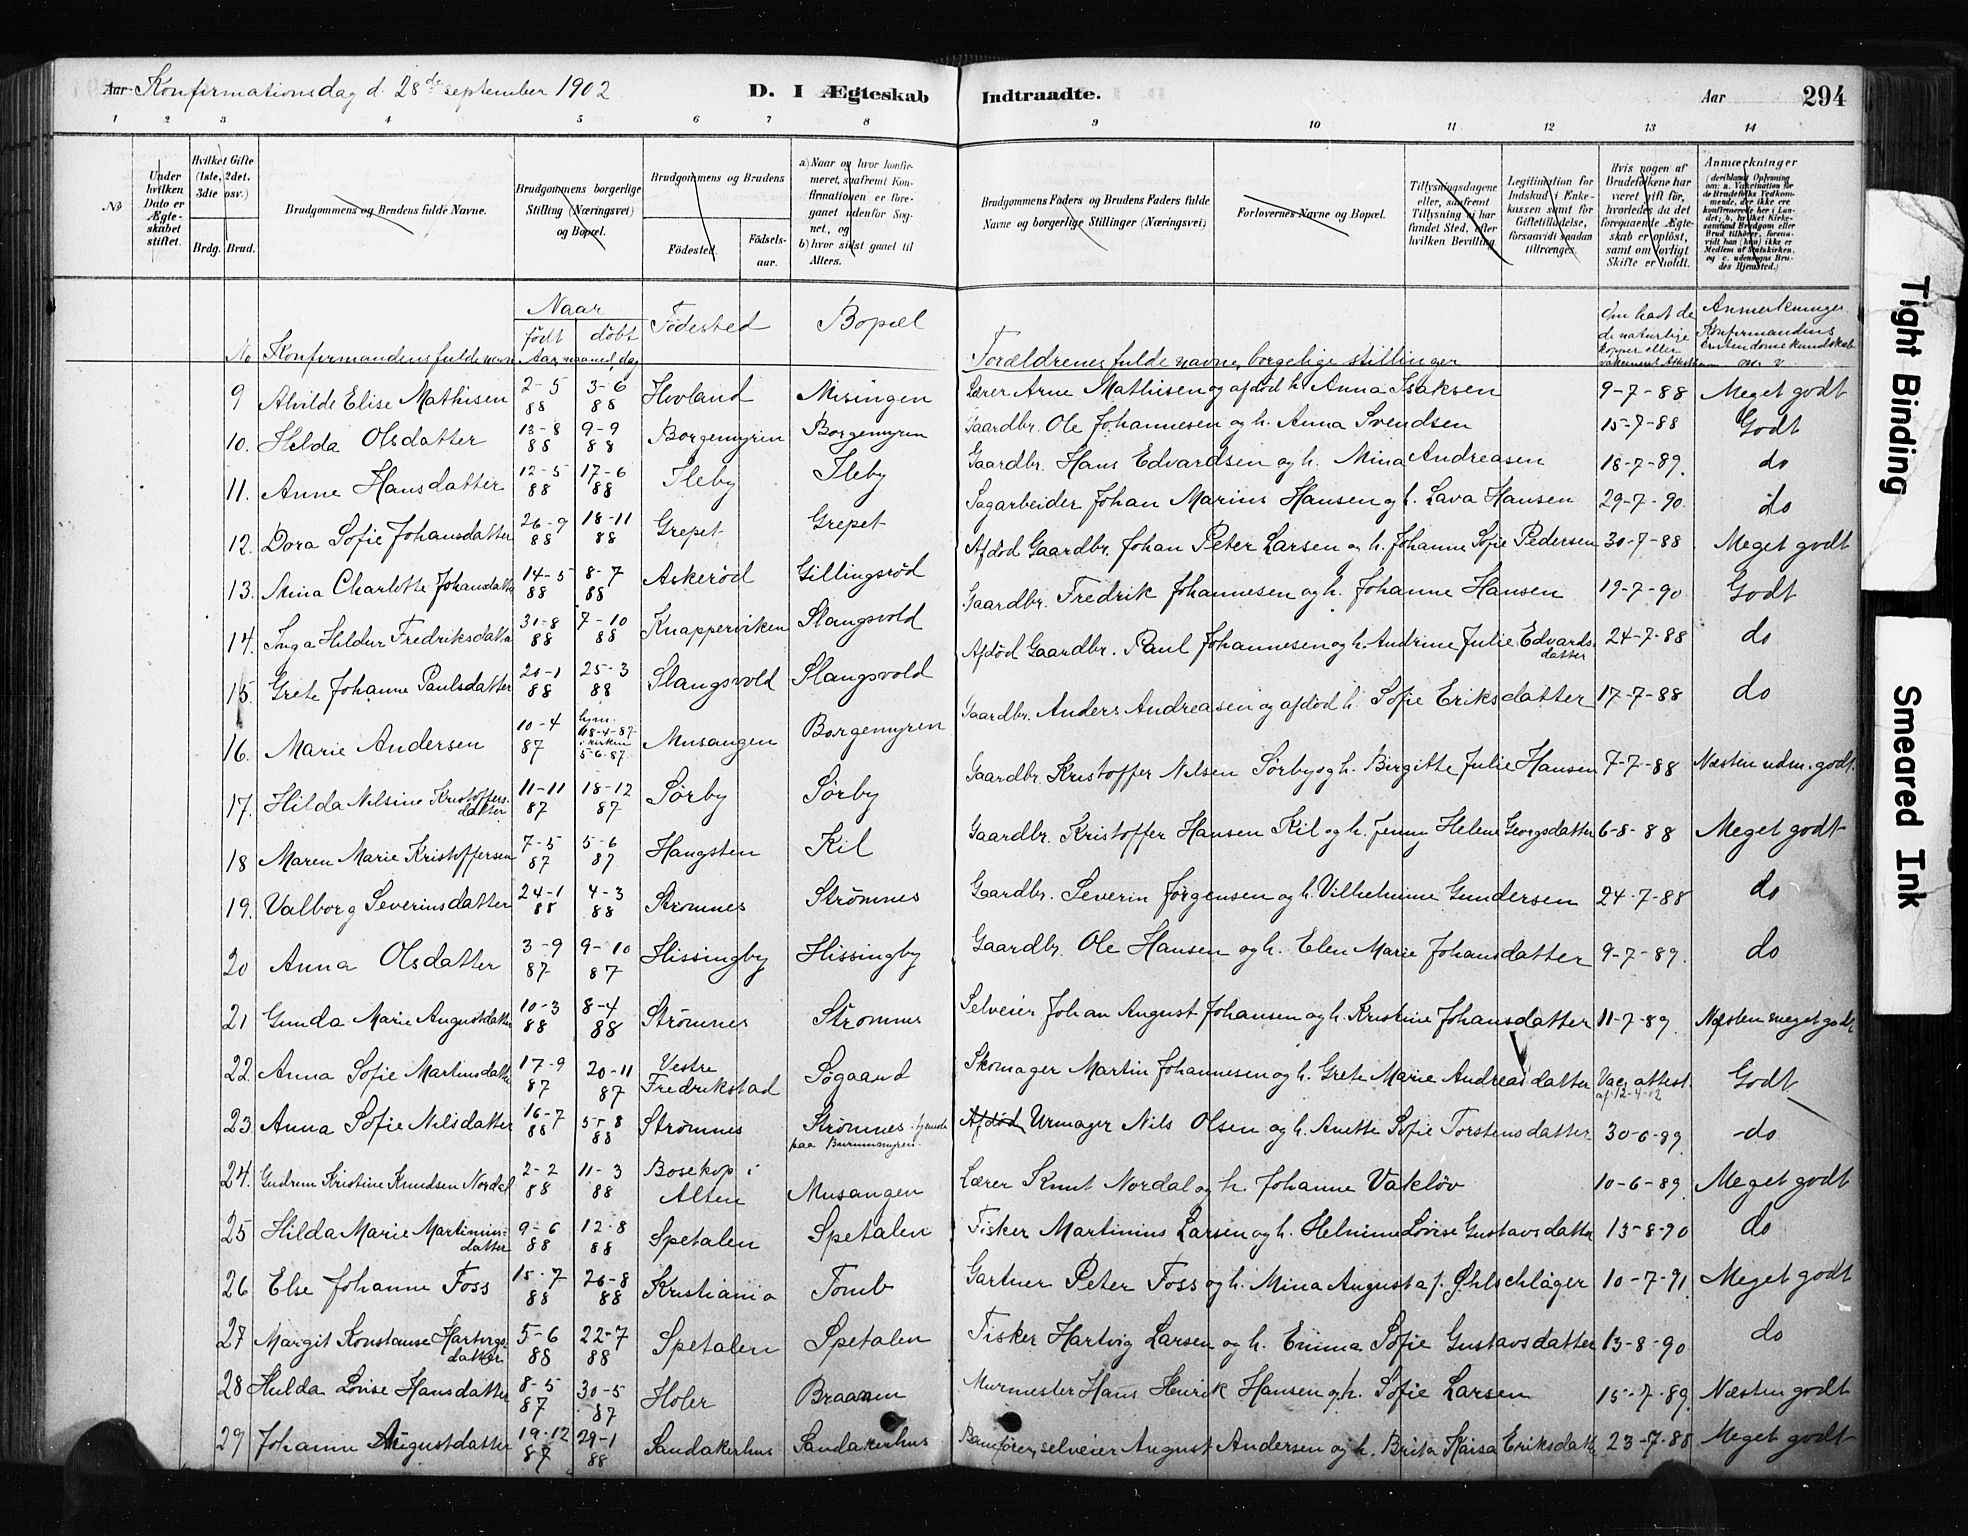 Aar Konfirmationsdag d. 28de september 1902 D. I Ægteskab Indtraadte. Aar 294
1 2 3 4 5 6 7 8 9 10 11 12 13 14
No
Under hvilken Dato er Ægteskabet stiftet.
Hvilket Gifte (1ste, 2det, 3die osv.)
Brdg. Brud.
Brudgommens og Brudens fulde Navne.
Brudgommens borgerlige Stilling (Næringsvei) og Bopæl.
Brudgommens og Brudens
Fødested. Fødselsaar.
a) Naar og hvor konfirmeret, saafremt Konfirmationen er foregaaet udenfor Sognet, og
b) hvor sidst gaaet til Alters.
Brudgommens Faders og Brudens Faders fulde Navne og borgerlige Stillinger (Næringsvei)
Forlovernes Navne og Bopæl.
Tillysningsdagene eller, saafremt Tillysning ei har fundet Sted, efter hvilken Bevilling.
Legitimation for Indskud i Enkekassen samt for Giftetilladelse, forsaavidt saadan tiltrænges.
Hvis nogen af Brudefolkene har været gift før, hvorledes da det foregaaende Ægteskab er opløst, samt om lovligt Skifte er holdt.
Anmærkninger (deriblandt Oplysning om: a. Vaccination for de Brudefolks Vedkommende, der ikke ere konfirmerede her i Landet; b. hvilket Kirkesamfund Brudgom eller Brud tilhører, forsaavidt han (hun) ikke er Medlem af Statskirken, og c. udensogns Brudes Hjemsted.)
No Konfirmandens fulde navn
Naar
født døbt
Aar, maaned, dag
Fødested
Bopæl
Forældrenes fulde navne, borgelige stillinger
Om hadt de naturlige kopper eller
Anmerkninger Konfirmandens kristendomskundskab m. v.
9 Alvilde Elise Mathisen 2-5 88 3-6 88 Hovland Misingen Lærer Arne Mathisen og afdød h. Anna Isaksen 9-7-88 Meget godt
10. Hilda Olsdatter 13-8 88 9-9 88 Borgemyren Borgemyren Gaardbr. Ole Johannesen og h. Anna Svendsen 15-7-88 Godt
11. Anne Hansdatter 12-5 88 17-6 88 Ileby Ileby Gaardbr. Hans Edvardsen og h. Mina Andreasen 18-7-89. do
12. Dora Sofie Johansdatter 26-9 88 18-11 88 Grepet Grepet Sagarbeider Johan Marius Hansen og h. Lava Hansen 29-7-90. do
13. Mina Charlotte Johansdatter 14-5 88 8-7 88 Askerød Gillingsrød Afdød Gaardbr. Johan Peter Larsen og h. Johanne Sofie Pedersen 30-7-88 Meget godt
14. Inga Hildur Fredriksdatter 31-8 88 7-10 88 Knapperviken Slangsvold Gaardbr. Fredrik Johannesen og h. Johanne Hansen 19-7-90 Godt
15 Grete Johanne Paulsdatter 20-1 88 25-3 88 Slangsvold Slangsvold Afdød Gaardbr. Paul Johannesen og h. Andrine Julie Edvardsdatter 24-7-88 do
16. Marie Andersen 10-4 87 hjem. 18-4-87 i kirken 5-6-87. Musangen Borgemyren Gaardbr. Anders Andreasen og afdød h. Sofie Eriksdatter 17-7-88 do
17. Hilda Nilsine Kristoffersdatter 11-11 87 18-12 87 Sørby Sørby Gaardbr. Kristoffer Nilsen Sørby og h. Birgitte Julie Hansen 7-7-88 Næsten udm. godt.
18 Maren Marie Kristoffersen 7-5 87 5-6 87 Haugsten Kil Gaardbr. Kristoffer Hansen Kil og h. Jenny Helene Georgsdatter 6-8-88 Meget godt
19. Valborg Severinsdatter 24-1 88 4-3 88 Strømnes Strømnes Gaardbr. Severin Jørgensen og h. Vilhelmine Gundersen 24-7-88 do
20 Anna Olsdatter 3-9 87 9-10 87 Hissingby Hissingby Gaardbr. Ole Hansen og h. Elen Marie Johansdatter 9-7-89. do
21 Gunda Marie Augustdatter 10-3 88 8-4 88 Strømnes Strømnes Selveier Johan August Johansen og h. Kristine Johansdatter 11-7-89. Næsten meget godt
22. Anna Sofie Martinsdatter 17-9 87 20-11 87 Vestre Fredrikstad Søgaard Skomager Martin Johannesen og h. Grete Marie Andreasdatter Vac. attest. af 12-4-02 Godt
23. Anna Sofie Nilsdatter 16-7 88 5-8 88 Strømnes Strømnes, tjenende paa Burumsmyren. Afdød Urmager Nils Olsen og h. Anette Sofie Torstensdatter 30-6-89. do
24. Gudrun Kristine Knudsen Nordal 2-2 88 11-3 88 Bosekop i Alten Musangen Lærer Knut Nordal og h. Johanne Vakløv 10-6-89. Meget godt
25 Hilda Marie Martiniusdatter 9-6 88 12-8 88 Spetalen Spetalen Fisker Martinius Larsen og h. Helmine Lovise Gustavsdatter 13-8-90 do
26 Else Johanne Foss 15-7 88 26-8 88 Kristiania Tomb Gartner Peter Foss og h. Mina Augusta f. Øhlschläger 10-7-91. Meget godt
27 Margit Konstanse Hartvigsdatter 5-6 88 22-7 88 Spetalen Spetalen Fisker Hartvig Larsen og h. Emma Sofie Gustavsdatter 13-8-90 do
28 Hulda Lovise Hansdatter 8-5 87 30-5 87 Holer Braanen Murmester Hans Henrik Hansen og h. Sofie Larsen 15-7-89. Næsten godt
29 Johanne Augustdatter 19-12 87 29-1 88 Sandakerhus Sandakerhus selveier August Andersen og h. Brita Kaisa Eriksdatter 23-7-88 Meget godt
Tight Binding
Smeared Ink